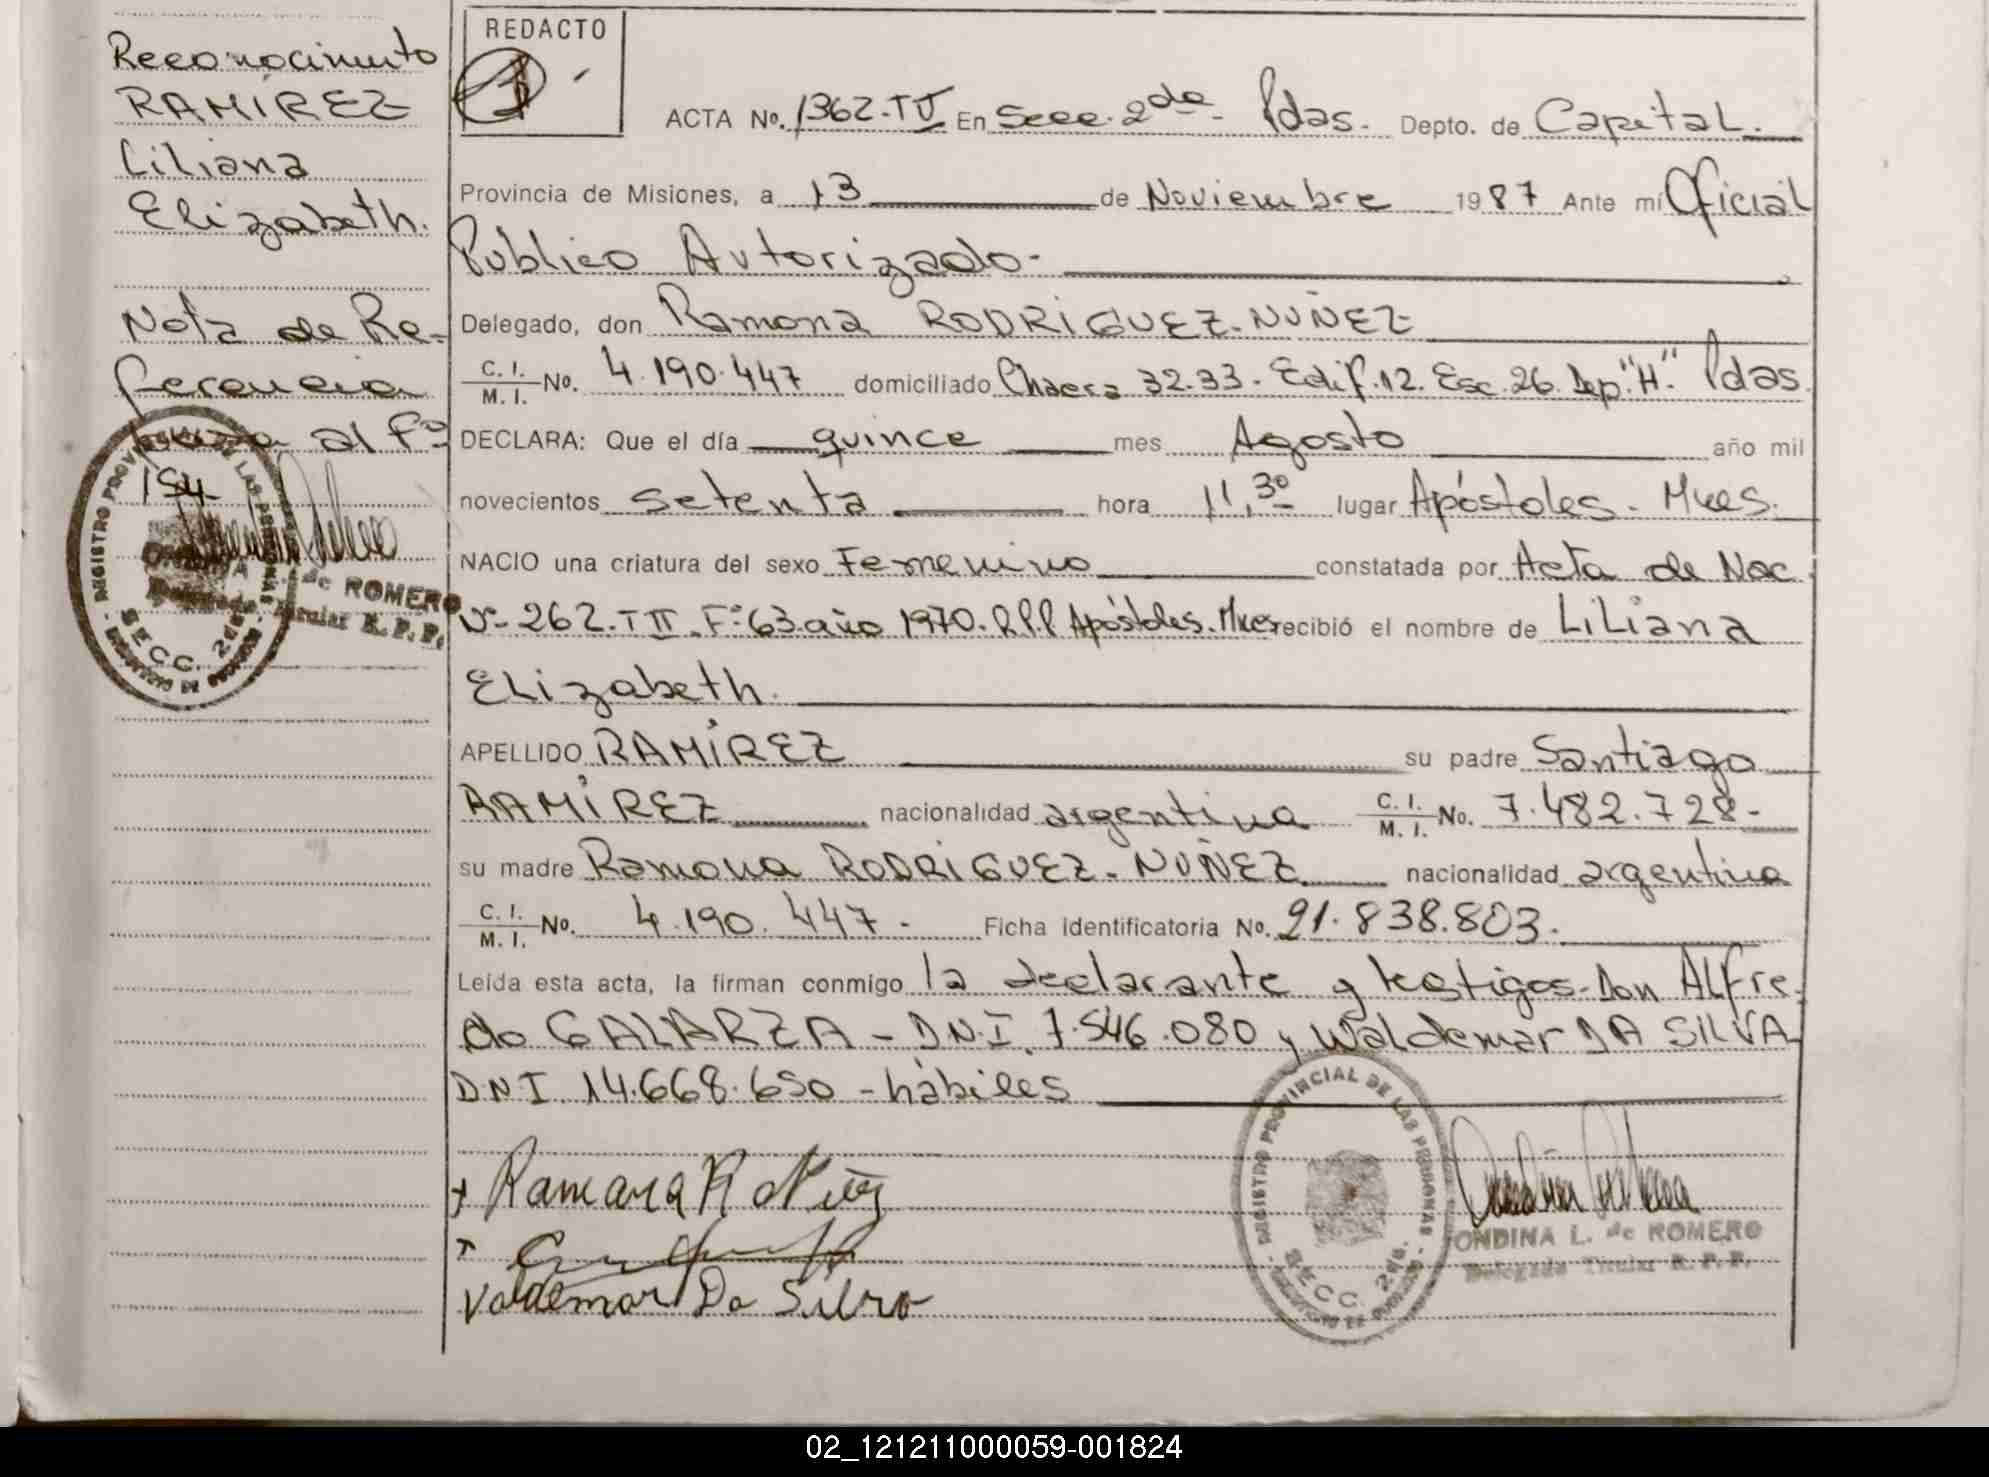 Reconocimiento
RAMÍREZ
Liliana
Elizabeth.
Nota de Re-
ferencia
al fº
154
REGISTRO PROVINCIAL DE LAS PERSONAS
SECC. 2da.
de ROMERO
Titular R. P. P.
REDACTO
ACTA No. 1362-TV En Secc. 2da - Pdas. Depto. de Capital.
Provincia de Misiones, a 13 de Noviembre 1987 Ante mí Oficial
Publico Autorizado-
Delegado, don Ramona RODRÍGUEZ-NUÑEZ
C. I. / M. I. No. 4.190.447 domiciliado Chacra 32.33. Edif. 12. Esc. 26. Dep "H" Pdas.
DECLARA: Que el día quince mes Agosto año mil
novecientos setenta hora 11,30 lugar Apóstoles. Mnes.
NACIO una criatura del sexo Femenino constatada por Acta de Nac.
Nº 262. TII. Fº 63. año 1970. R.P.P Apóstoles. Mnes recibió el nombre de Liliana
Elizabeth.
APELLIDO RAMÍREZ su padre Santiago
RAMÍREZ nacionalidad argentina C. I. / M. I. No. 7.482.728-
su madre Ramona RODRÍGUEZ-NUÑEZ nacionalidad argentina
C. I. / M. I. No. 4.190.447- Ficha identificatoria No. 21.838.803.
Leída esta acta, la firman conmigo la declarante y testigos-Don Alfre-
do GALARZA - D.N.I. 7.546.080 y Waldemar DA SILVA
D.N.I 14.668.650 - hábiles
Ramona R
Valdemar Da Silva
REGISTRO PROVINCIAL DE LAS PERSONAS
SECC. 2da.
ONDINA L. de ROMERO
Delegada Titular R. P. P.
02_121211000059-001824